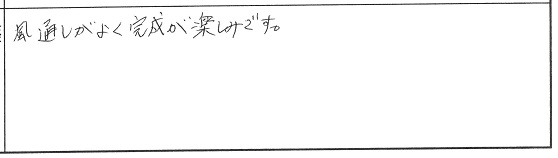 風通しがよく完成が楽しみです。